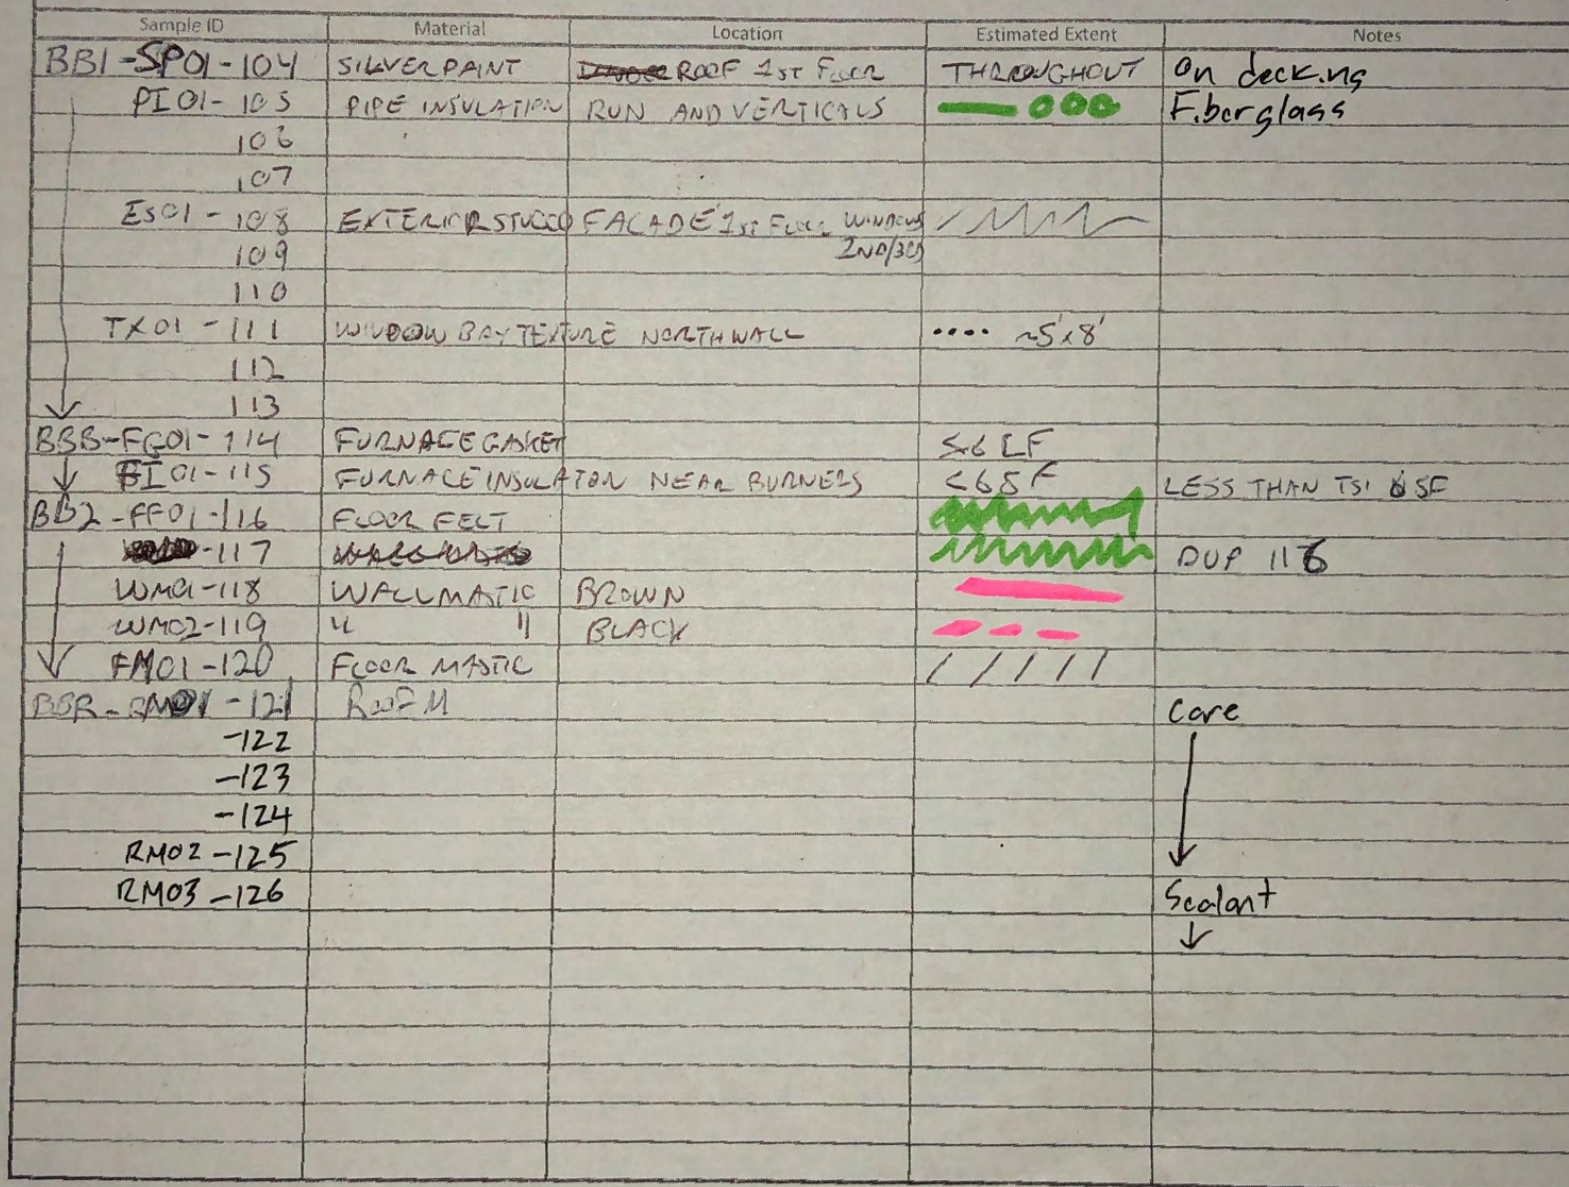 Sample ID Material Location Estimated Extent Notes
BB1-SP01-104 SILVER PAINT ROOF 1ST FLOOR THROUGHOUT On decking
PI01-105 PIPE INSULATION RUN AND VERTICALS Fiberglass
106
107
ES01-108 EXTERIOR STUCCO FACADE 1ST FLOOR WINDOWS
109 2ND/3RD
110
TX01-111 WINDOW BAY TEXTURE NORTH WALL ~5'x8'
112
113
BBB-FG01-114 FURNACE GASKET ≤6 LF
FI01-115 FURNACE INSULATION NEAR BURNERS <6SF LESS THAN TSI 6SF
BB2-FF01-116 FLOOR FELT
-117 DUP 116
WM01-118 WALL MASTIC BROWN
WM02-119 " " BLACK
FM01-120 FLOOR MASTIC
BBR-RM01-121 ROOF M Core
-122
-123
-124
RM02-125
RM03-126 Sealant